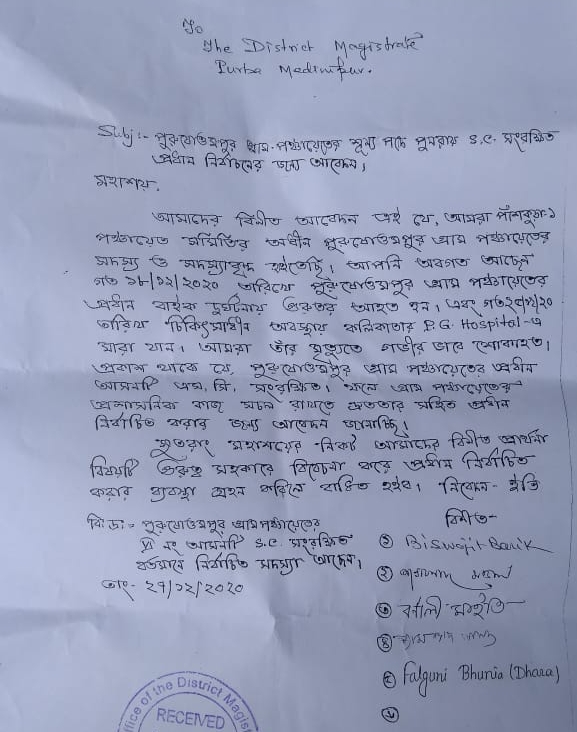 To
The District Magistrate
Purba Medinipur.
Subj :- পুরুষোত্তমপুর গ্রাম পঞ্চায়েতের শূন্য পদে পুনরায় S.C. সংরক্ষিত
প্রধান নির্বাচনের জন্য আবেদন,
মহাশয়,
আমাদের বিনীত আবেদন এই যে, আমরা পাঁশকুড়া-১
পঞ্চায়েত সমিতির অধীন পুরুষোত্তমপুর গ্রাম পঞ্চায়েতের
সদস্য ও সদস্যাবৃন্দ হইতেছি। আপনি অবগত আছেন
গত ১৮/১২/২০২০ তারিখে পুরুষোত্তমপুর গ্রাম পঞ্চায়েতের
প্রধান বাইক দুর্ঘটনায় গুরুতর আহত হন, এবং গত
তারিখ চিকিৎসাধীন অবস্থায় কলিকাতার P.G. Hospital-এ
মারা যান। আমরা তাঁর মৃত্যুতে গভীর ভাবে শোকাহত।
প্রকাশ থাকে যে, পুরুষোত্তমপুর গ্রাম পঞ্চায়েতের প্রধান
আসনটি এস, সি, সংরক্ষিত। ফলে গ্রাম পঞ্চায়েতের
প্রশাসনিক কাজ সচল রাখতে দ্রুততার সহিত প্রধান
নির্বাচিত করার জন্য আবেদন জানাচ্ছি।
সুতরাং মহাশয়ের নিকট আমাদের বিনীত প্রার্থনা
বিষয়টি গুরুত্ব সহকারে বিবেচনা করে প্রধান নির্বাচিত
করার ব্যবস্থা গ্রহন করিলে বাধিত হইব। নিবেদন- ইতি
বি: দ্র:- পুরুষোত্তমপুর গ্রাম পঞ্চায়েতের
নং আসনটি S.C. সংরক্ষিত
বর্তমানে নির্বাচিত সদস্যা আছেন,
তাং- ২৭/১২/২০২০
বিনীত-
① Biswajit Barik
②
③ বর্ণালী মাইতি
④
⑤ Falguni Bhunia (Dhara)
⑥
Office of the District Magis
RECEIVED